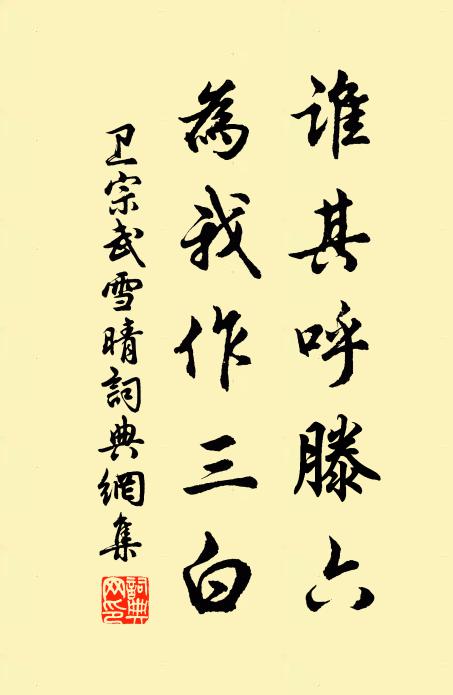 谁其呼滕六
為我作三白
卫宗武雪晴詞典網集
詞典网印